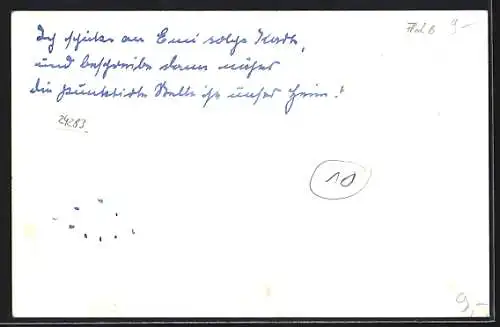 Ich schicke an Emi solche Karte,
und beschreibe dann näher
die punktirte Stelle ist unser Heim!
24283
10
9,-
9,-